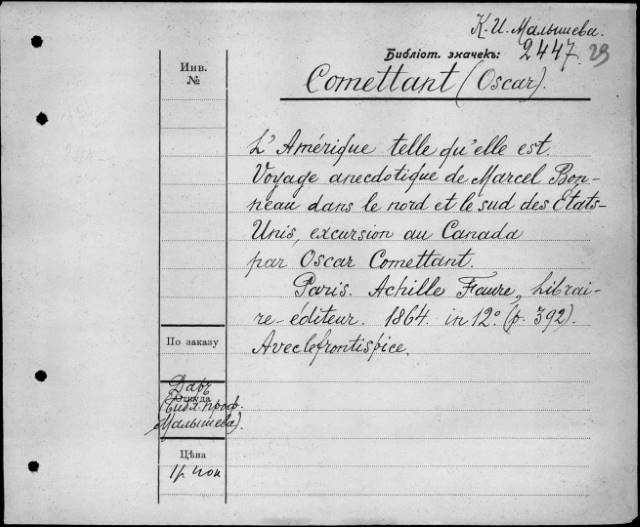 К. И. Малышева.
Библіот. значекъ: 2447. 29
Инв.
№
Comettant (Oscar).
L'Amérique telle qu'elle est.
Voyage anecdotique de Marcel Bon-
neau dans le nord et le sud des États-
Unis, excursion au Canada
par Oscar Comettant.
Paris. Achille Faure, Librai-
re-éditeur. 1864. in 12° (p. 392).
Avec le frontispice.
По заказу
Даръ
Откуда
(Библ. проф.
Малышева).
Цѣна